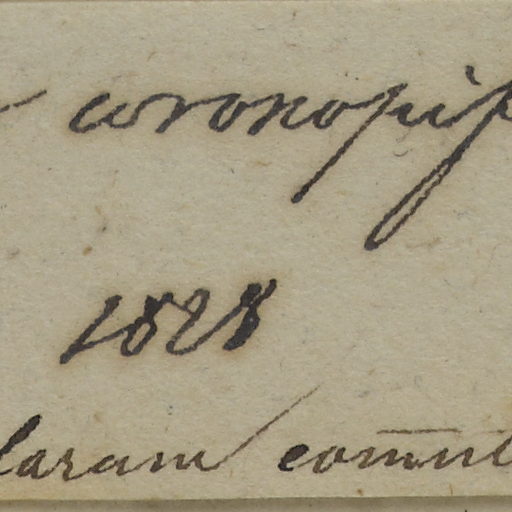 coronopif
1828
laram com̅u